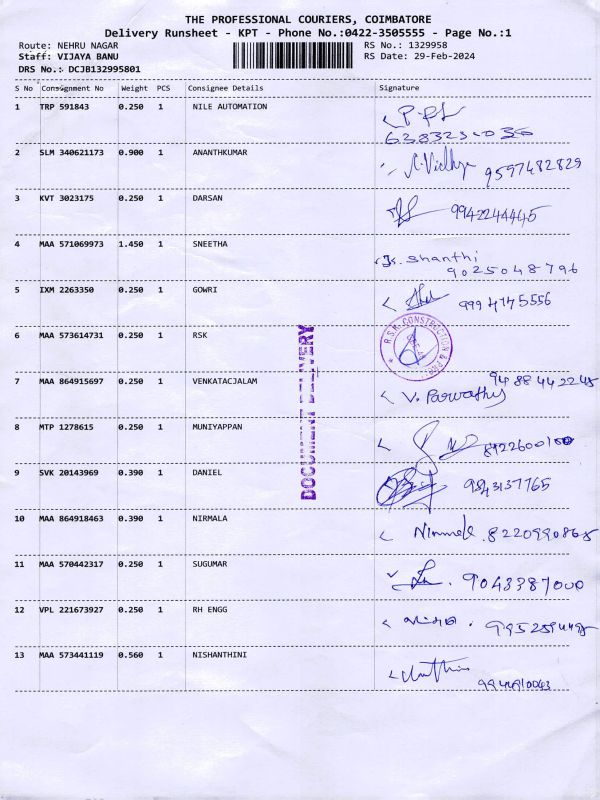 THE PROFESSIONAL COURIERS, COIMBATORE
Delivery Runsheet - KPT - Phone No.:0422-3505555 - Page No.:1
Route: NEHRU NAGAR RS No.: 1329958
Staff: VIJAYA BANU RS Date: 29-Feb-2024
DRS No.: DCJB132995801
S No Consignment No Weight PCS Consignee Details Signature
1 TRP 591843 0.250 1 NILE AUTOMATION
2 SLM 340621173 0.900 1 ANANTHKUMAR Vidhya 9597482829
3 KVT 3023175 0.250 1 DARSAN 9942244445
4 MAA 571069973 1.450 1 SNEETHA Shanthi
9025048796
5 IXM 2263350 0.250 1 GOWRI
6 MAA 573614731 0.250 1 RSK R.S.K. CONSTRUCTION &
7 MAA 864915697 0.250 1 VENKATACJALAM 9488442245
V. Parwathy
8 MTP 1278615 0.250 1 MUNIYAPPAN
9 SVK 20143969 0.390 1 DANIEL 9843137765
10 MAA 864918463 0.390 1 NIRMALA 8220990865
11 MAA 570442317 0.250 1 SUGUMAR 9043387000
12 VPL 221673927 0.250 1 RH ENGG
13 MAA 573441119 0.560 1 NISHANTHINI
DOCUMENT DELIVERY